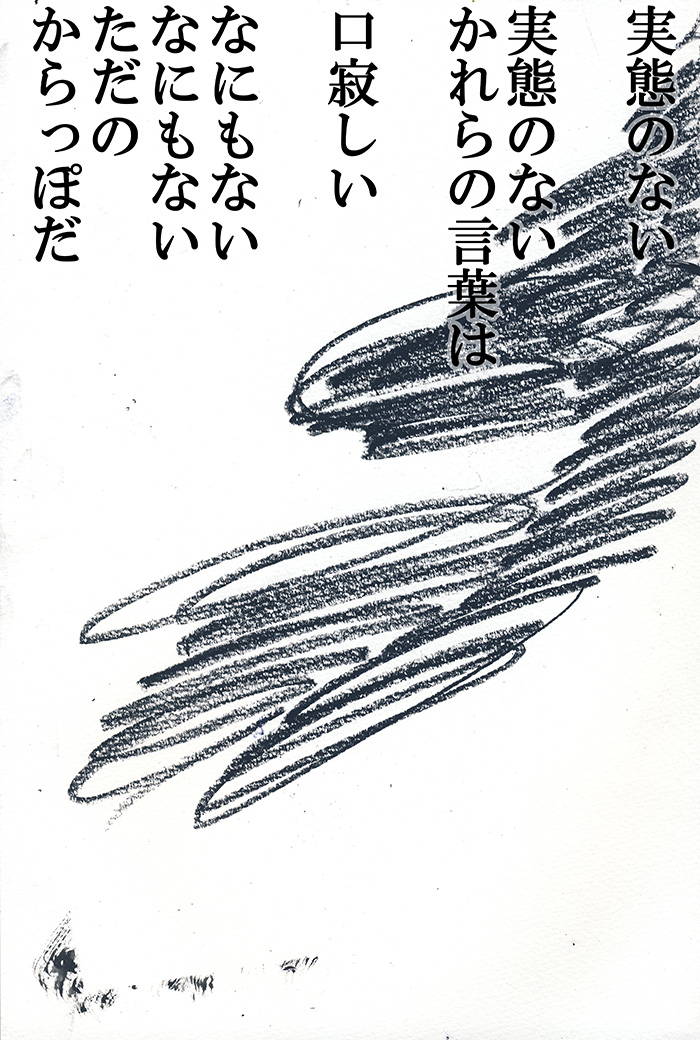 実態のない
実態のない
かれらの言葉は
口寂しい
なにもない
なにもない
ただの
からっぽだ